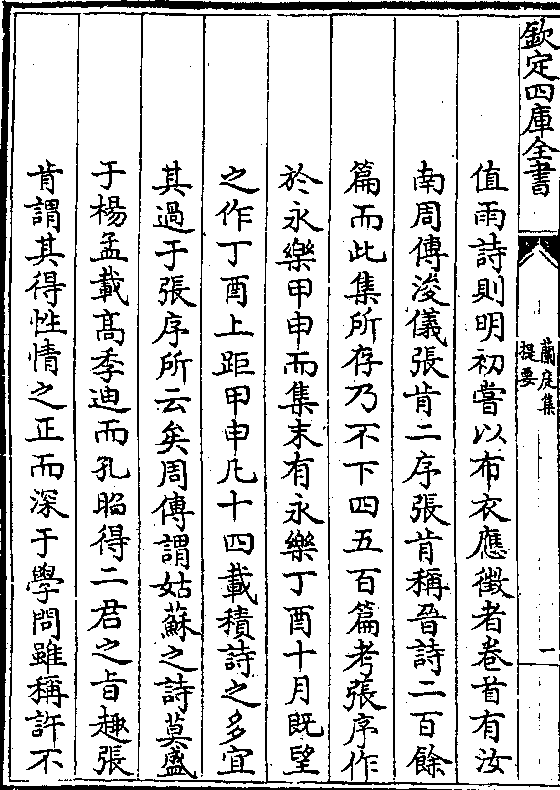 欽定四庫全書
蘭庭集
提要
一
值雨詩則明初嘗以布衣應徵者卷首有汝
南周傅浚儀張肯二序張肯稱晉詩二百餘
篇而此集所存乃不下四五百篇考張序作
於永樂甲申而集末有永樂丁酉十月既望
之作丁酉上距甲申凡十四載積詩之多宜
其過于張序所云矣周傅謂姑蘇之詩莫盛
于楊孟載髙季迪而孔昭得二君之旨趣張
肯謂其得性情之正而深于學問雖稱許不